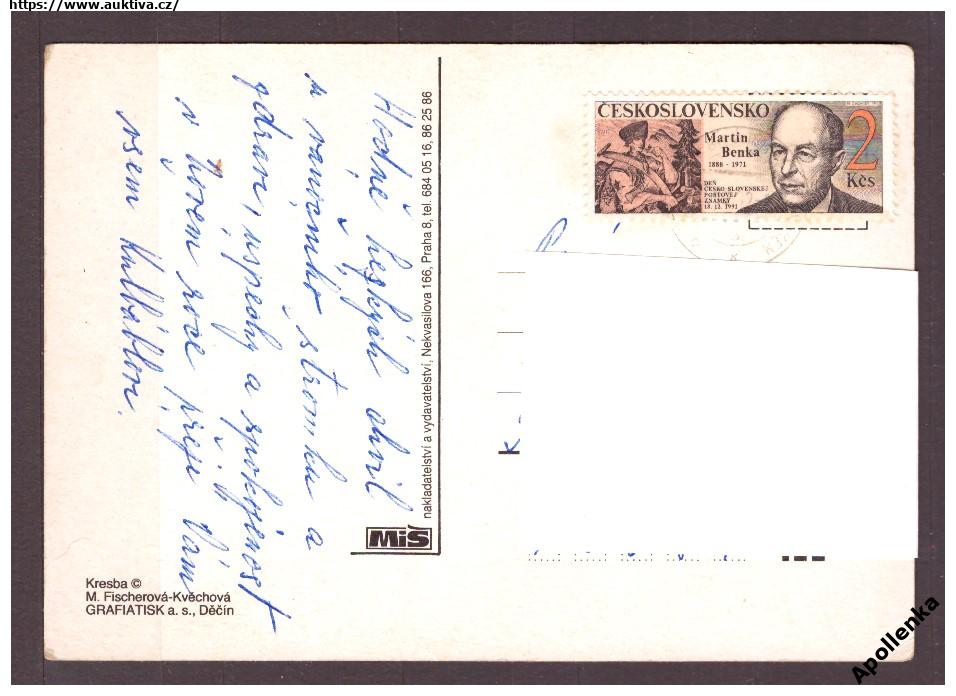 https://www.auktiva.cz/
Hodně hezkých chvil
u vánočního stromku a
zdraví, úspěchy a spokojenost
v Novém roce přeje Vám
všem
nakladatelství a vydavatelství, Nekvasilova 166, Praha 8, tel. 684 05 16, 86 25 86
MíŠ
Kresba ©
M. Fischerová-Kvěchová
GRAFIATISK a. s., Děčín
ČESKOSLOVENSKO
Martin
Benka
1888 - 1971
DEŇ
ČESKO-SLOVENSKEJ
POŠTOVEJ
ZNÁMKY
18.12.1991
2
Kčs
K.
Apollenka